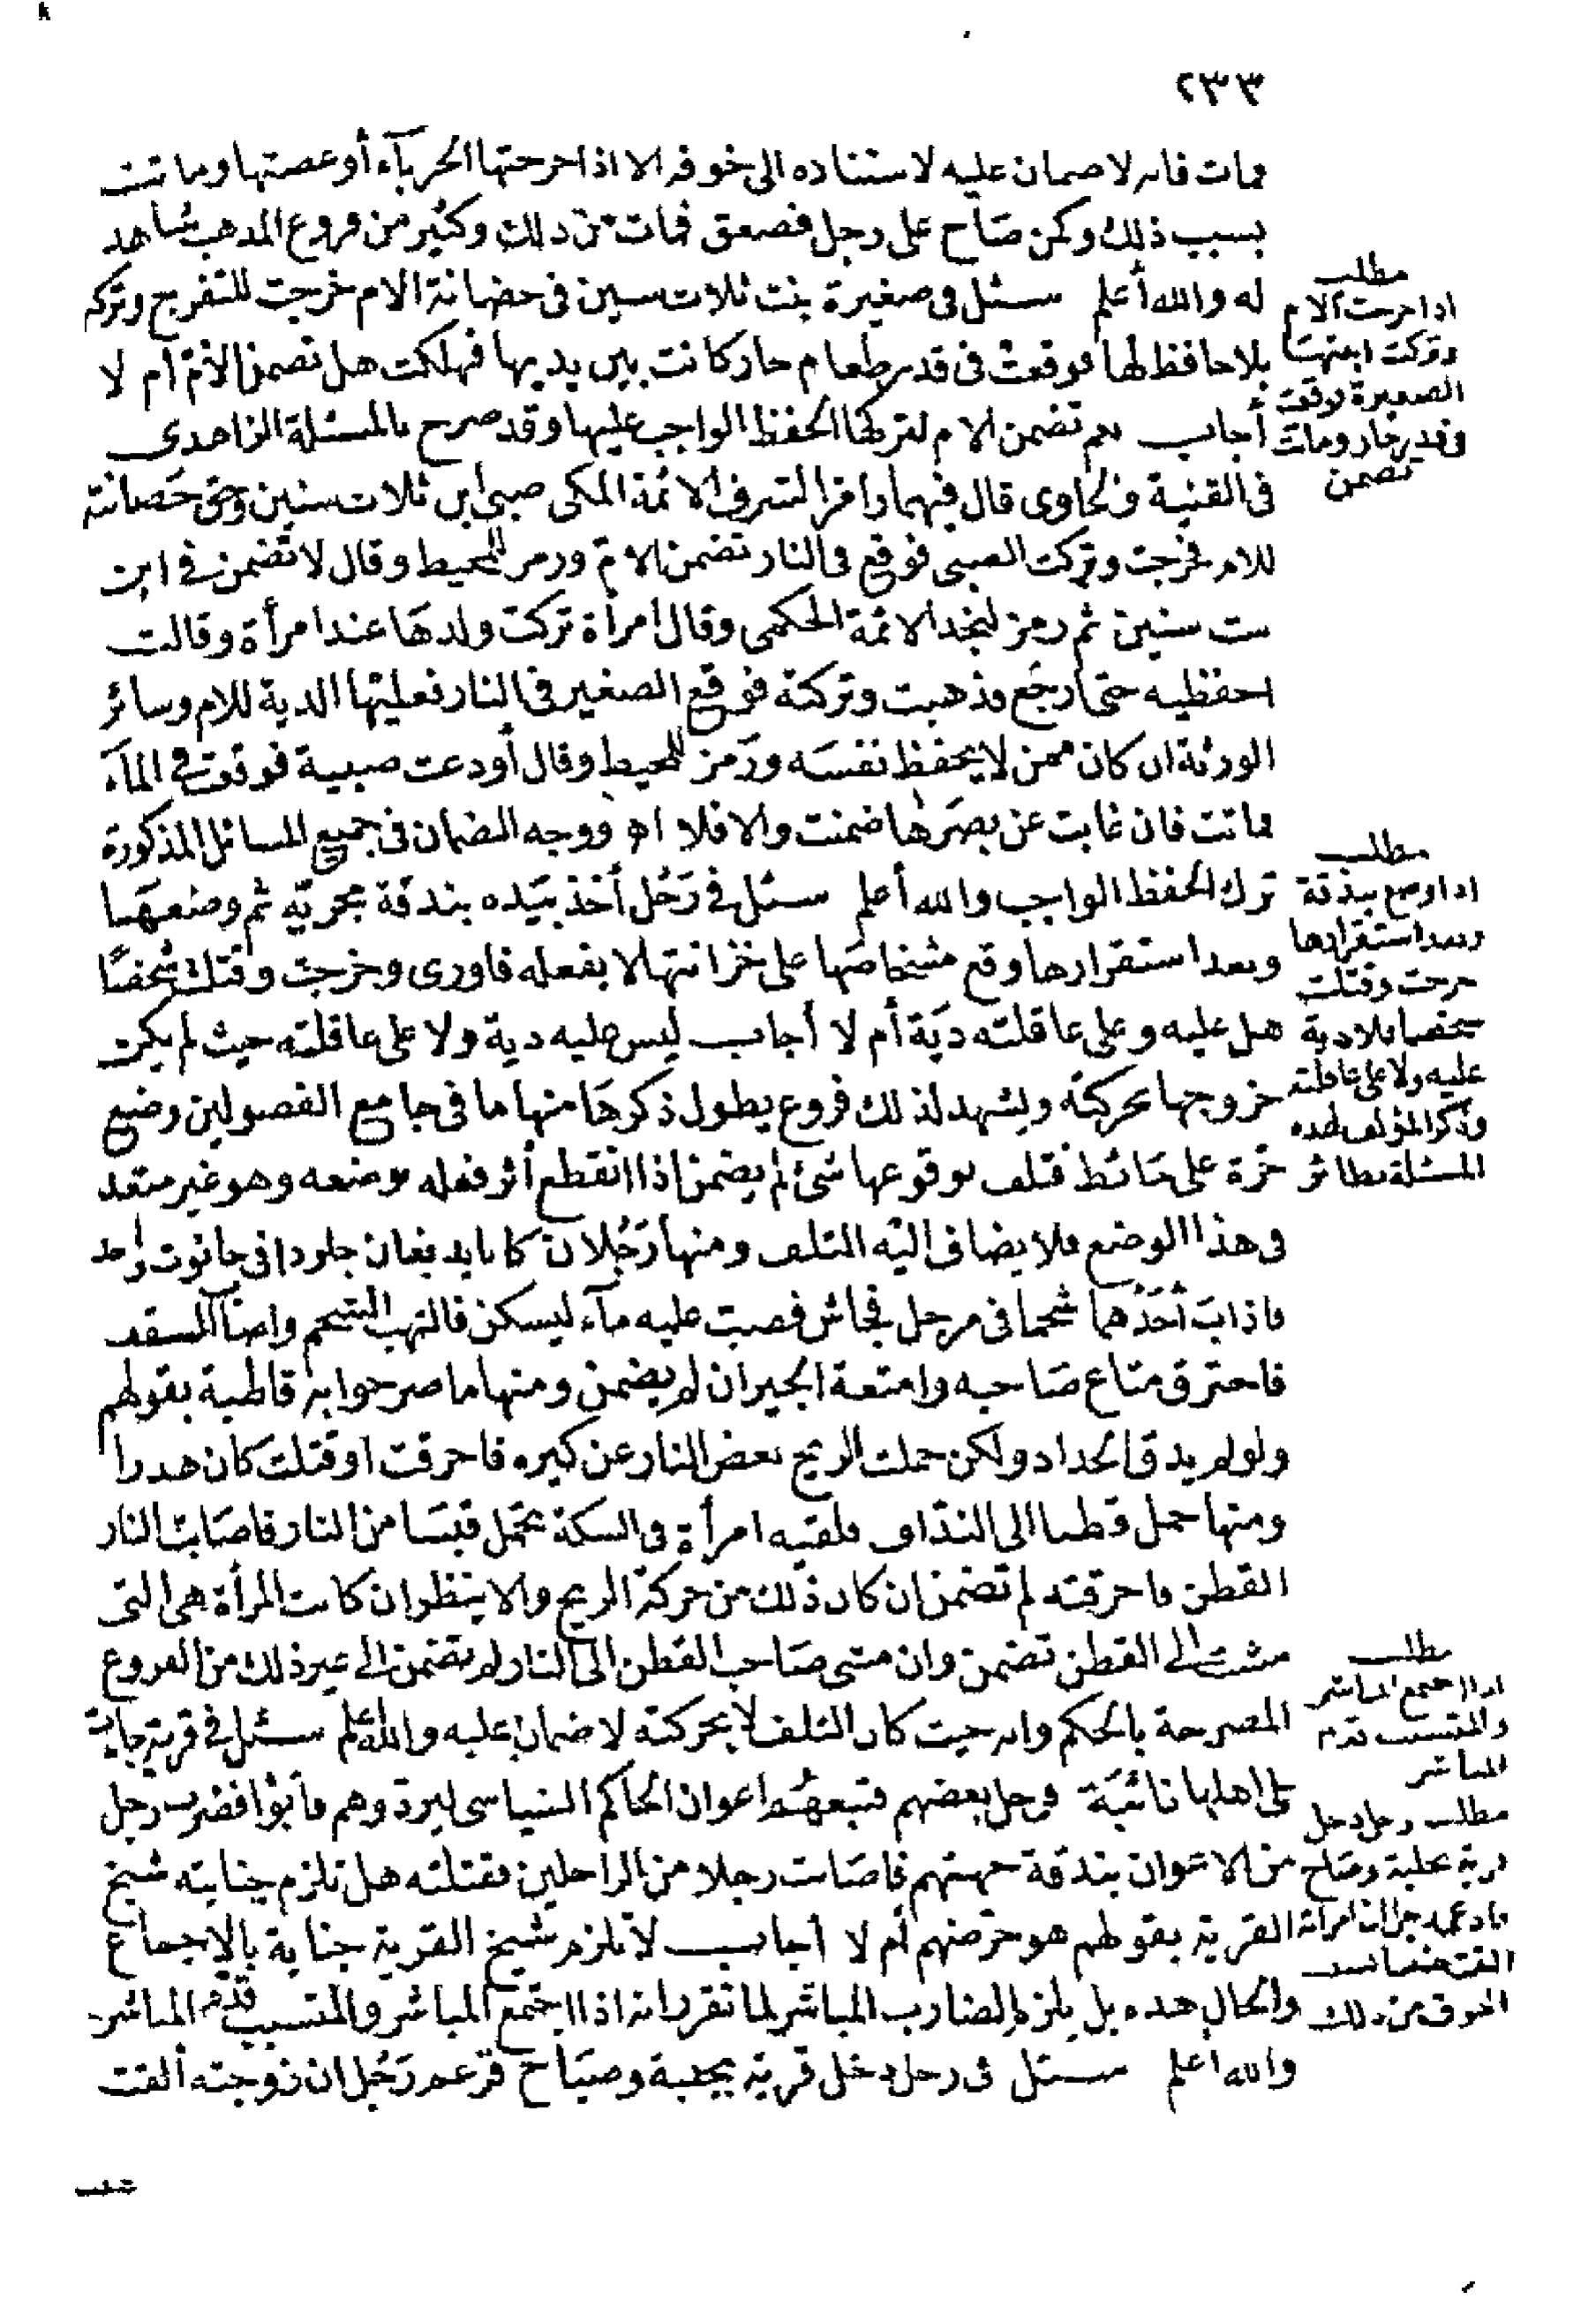 ٢٣٣
فمات فانه لا ضمان عليه لاستناده الى خوفه الا اذا اخرجتها الحرباء أو عصتها وماتت
بسبب ذلك وكمن صاح على رجل فصعق فمات من ذلك وكثير من فروع المذهب شاهد
له والله أعلم سئل فى صغيرة بنت ثلاث سنين فى حضانة الام خرجت للتفرج وتركتها
بلا حافظ لها فوقعت فى قدر طعام حار كانت بين يديها فهلكت هل تضمن الأمّ أم لا
أجاب نعم تضمن الام لتركها الحفظ الواجب عليها وقد صرح بالمسئلة الزاهدى
فى القنية والحاوى قال فيهما رامزا لشرف الائمة المكى صبى ابن ثلاث سنين وحق حضانته
للام فخرجت وتركت الصبى فوقع فى النار تضمن الام ورمز للمحيط وقال لا تضمن فى ابن
ست سنين ثم رمز لنجد الائمة الحكمى وقال امرأة تركت ولدها عند امرأة وقالت
احفظيه حتى ارجع وذهبت وتركته فوقع الصغير فى النار فعليها الدية للام وسائر
الورثة ان كان ممن لا يحفظ نفسه ورمز للمحيط وقال أودعت صبية فوقعت فى الماء
فماتت فان غابت عن بصرها ضمنت والا فلا اه ووجه الضمان فى جميع المسائل المذكورة
ترك الحفظ الواجب والله أعلم سئل فى رجل أخذ بيده بندقة مجربه ثم وضعها
وبعد استقرارها وقع مشخاصها على خزانتها لا بفعله فاورى وخرجت وقتلت شخصا
هل عليه وعلى عاقلته دية أم لا أجاب ليس عليه دية ولا على عاقلته حيث لم يكن
خروجها بحركته ويشهد لذلك فروع يطول ذكرها منها ما فى جامع الفصولين وضع
جرة على حائط فتلف بوقوعها شئ لم يضمن اذا انقطع أثر فعله بوضعه وهو غير متعد
فى هذا الوضع فلا يضاف اليه التلف ومنها رجلان كانا يدبغان جلودا فى حانوت واحد
فاذاب أحدهما شحما فى مرجل فجاش فصبت عليه ماء ليسكن فالتهب الشحم واصاب السقف
فاحترق متاع صاحبه وامتعة الجيران لم يضمن ومنها ما صرحوا به قاطبة بقولهم
ولو لم يدق الحداد ولكن حملت الريح بعض النار عن كيره فاحرقت او قتلت كان هدرا
ومنها حمل قطنا الى النداف فلقيه امرأة فى السكة تحمل قبسا من النار فاصابت النار
القطن فاحرقته لم تضمن ان كان ذلك من حركة الريح والا ينظر ان كانت المرأة هى التى
مشت الى القطن تضمن وان مشى صاحب القطن الى النار لم تضمن الى غير ذلك من الفروع
المصرحة بالحكم وانه حيث كان التلف لا بحركته لا ضمان عليه والله اعلم سئل فى قرية جاءت
على اهلها نائبة فرحل بعضهم فتبعهم اعوان الحاكم السياسى ليردوهم فأبوا فضرب رجل
من الاعوان بندقة جهتهم فاصابت رجلا من الراحلين فقتلته هل تلزم جنايته شيخ
القرية بقولهم هو حرضهم أم لا أجاب لا تلزم شيخ القرية جناية بالاجماع
والحال هذه بل يلزم الضارب المباشر لما تقرر انه اذا اجتمع المباشر والمتسبب قدم المباشر
والله اعلم سئل فى رجل دخل قرية بجلبة وصياح فزعم رجل ان زوجته ألقت
مطلب
اذا خرجت الام
وتركت ابنتها
الصغيرة فوقعت
فى قدر حار وماتت
تضمن
مطلب
اذا وضع بندقة
وبعد استقرارها
خرجت وقتلت
شخصا فلا دية
عليه ولا على عاقلته
وذكر المؤلف لهذه
المسئلة نظائر
مطلب
اذا اجتمع المباشر
والمتسبب قدم
المباشر
مطلب رجل دخل
قرية بجلبة وصياح
فادعى رجل ان امرأته
القت جنينا بسبب
الخوف من ذلك